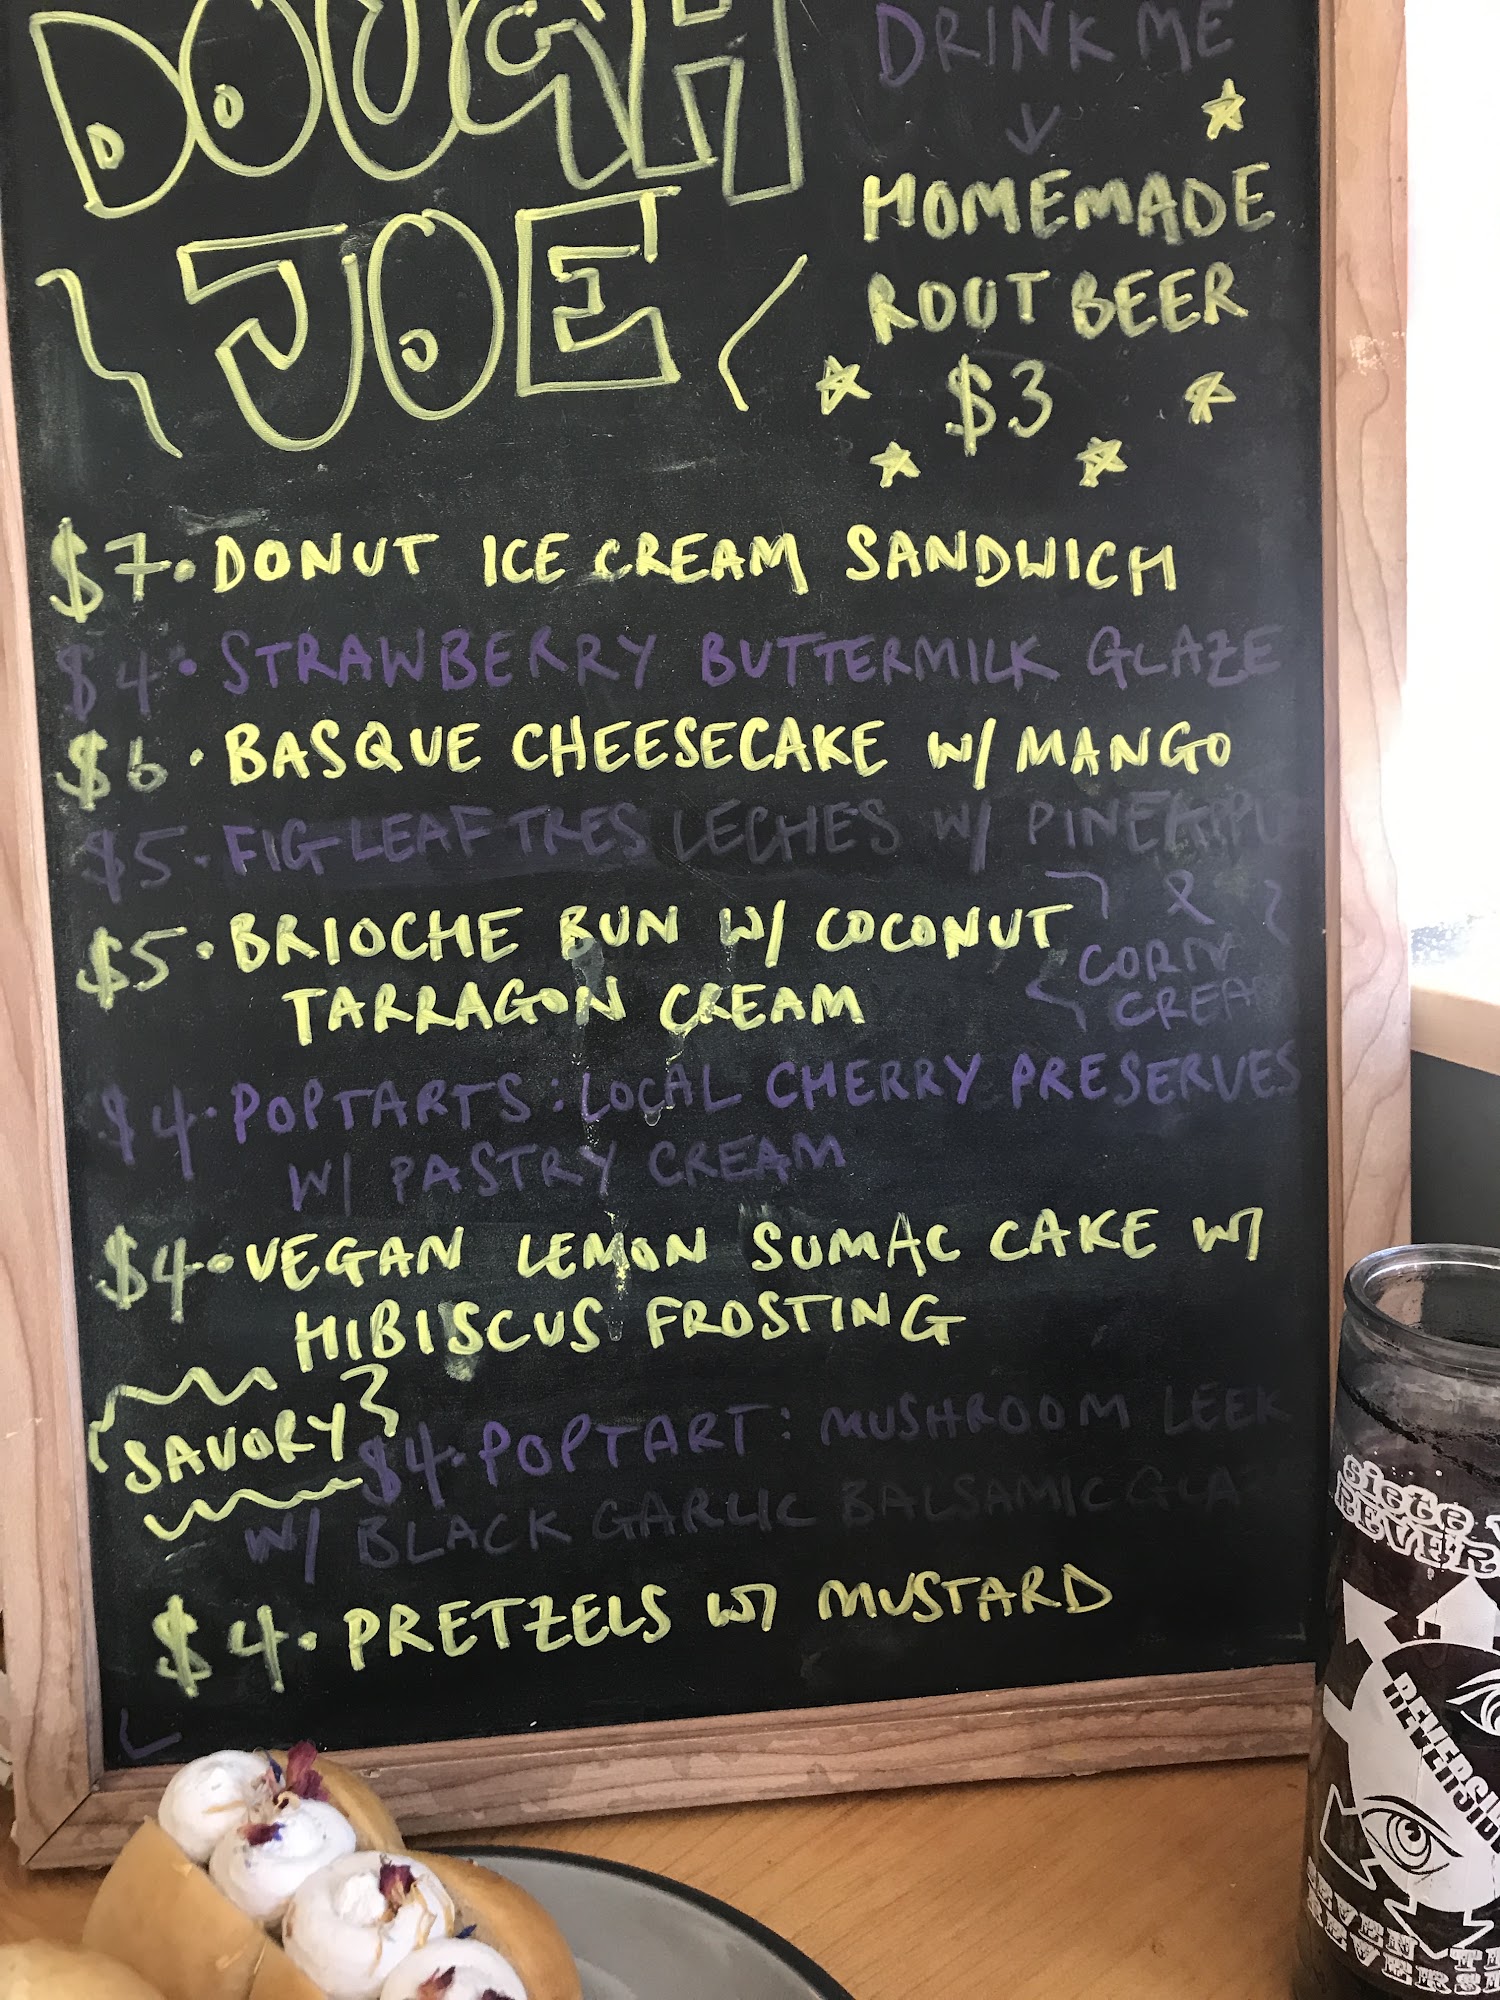 DOUGH
JOE
DRINK ME
HOMEMADE
ROOT BEER
$3
$7 · DONUT ICE CREAM SANDWICH
$4 · STRAWBERRY BUTTERMILK GLAZE
$6 · BASQUE CHEESECAKE W/ MANGO
$5 · FIG LEAF TRES LECHES W/ PINEAPPL
& CORN
CREAM
$5 · BRIOCHE BUN W/ COCONUT
TARRAGON CREAM
$4 · POPTARTS: LOCAL CHERRY PRESERVES
W/ PASTRY CREAM
$4 · VEGAN LEMON SUMAC CAKE W/
HIBISCUS FROSTING
SAVORY
$4 · POPTART: MUSHROOM LEEK
W/ BLACK GARLIC BALSAMIC GLAZ
$4 · PRETZELS W/ MUSTARD
Siete
REVER
REVERSI
SEVEN
REVERS